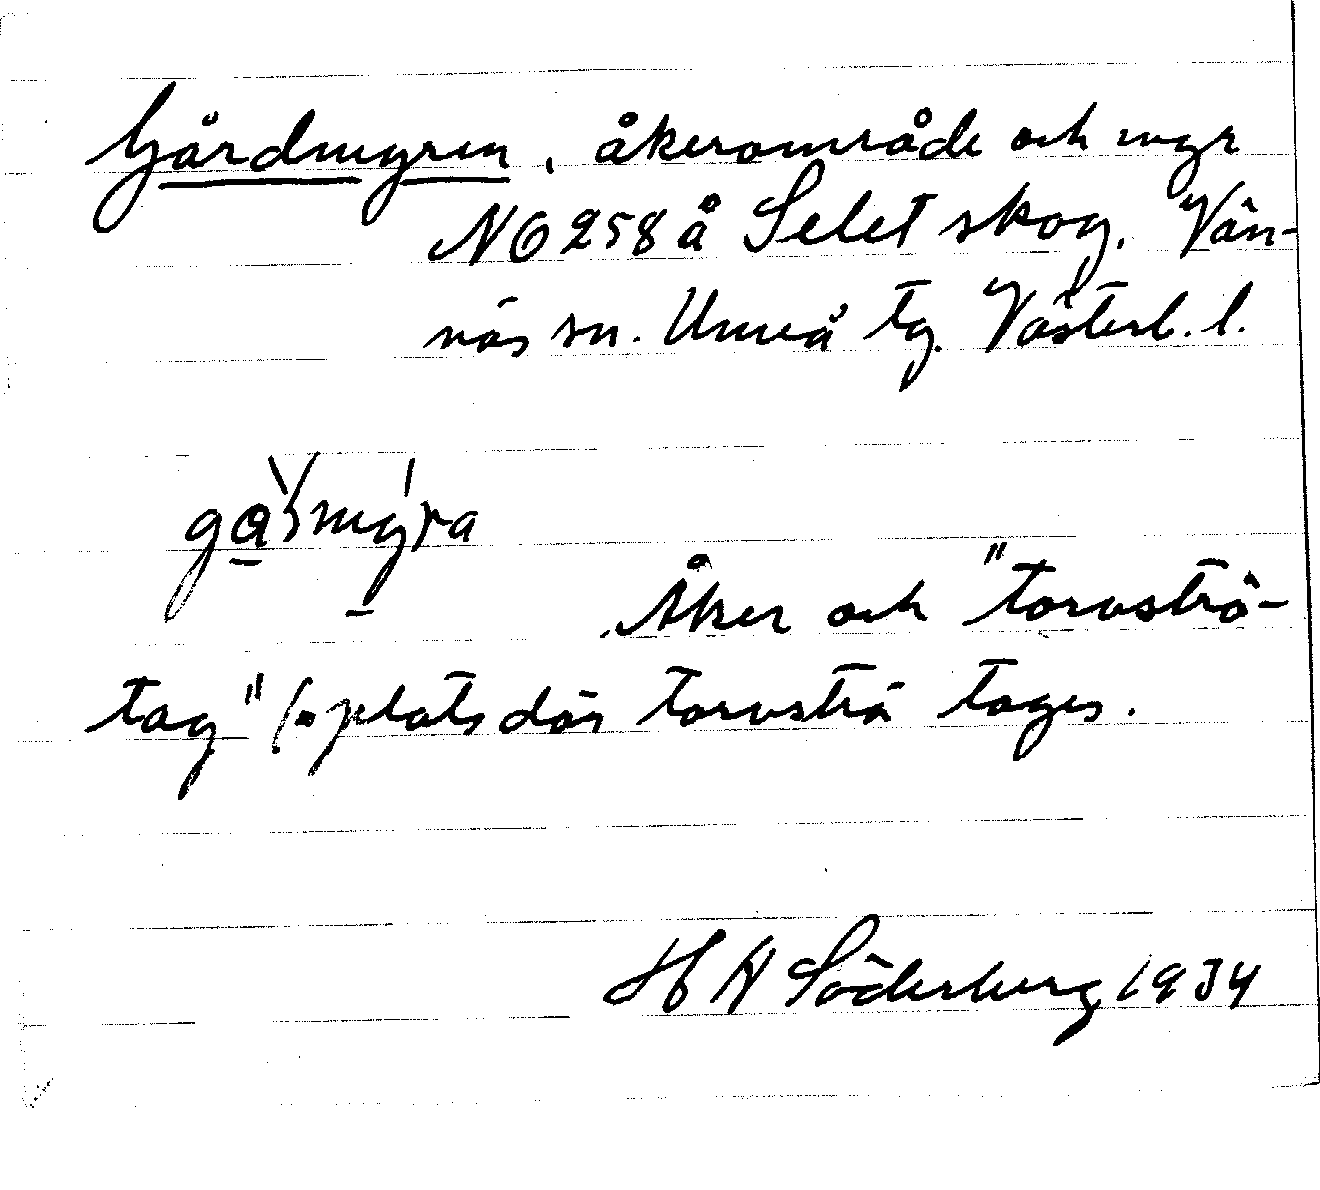 Gårdmyren, åkerområde och myr
NO 258 å Selet skog. Vän-
näs sn. Umeå tg. Västerb. l.
Åker och "torvströ-
tag" (= plats där torvströ tages.
H A Söderberg 1934